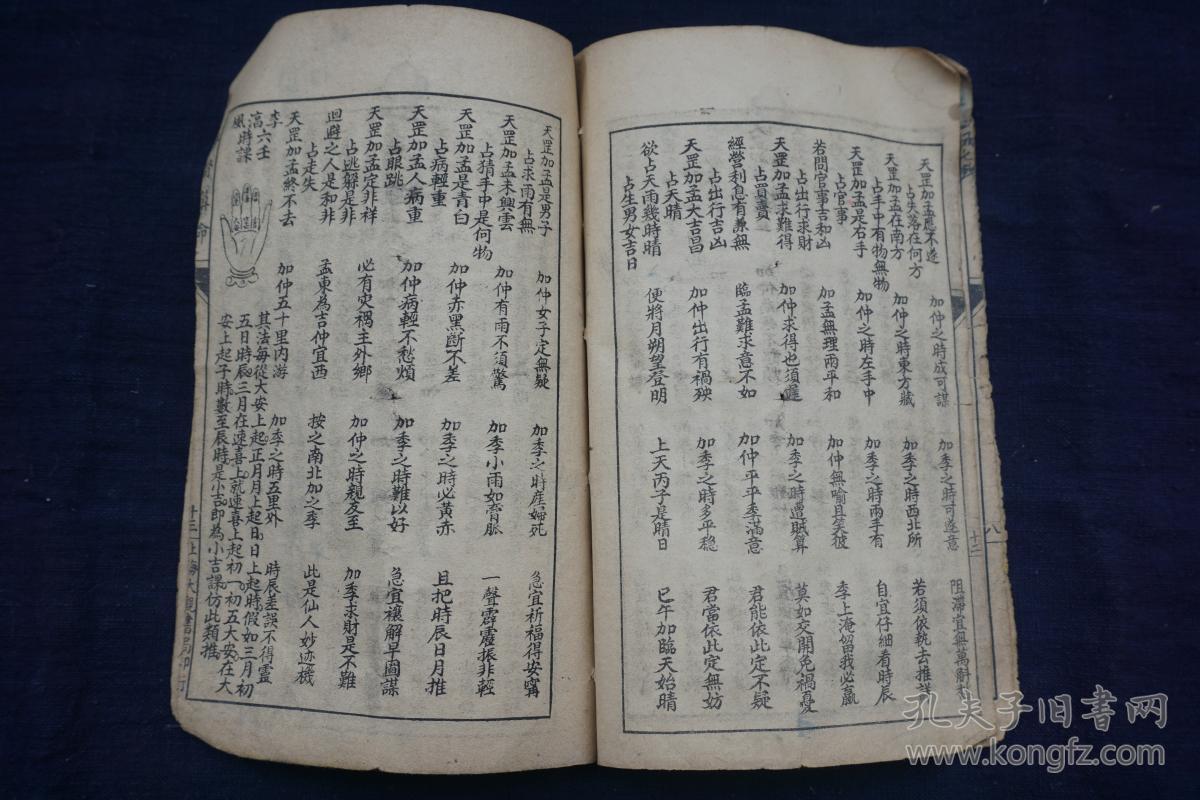 天罡加孟應不遂 加仲之時成可謀 加季之時可遂意 阻滞宜無萬
占失落在何方
天罡加孟在南方 加仲之時東方藏 加季之時西北所 若須依執去推詳
占手中有物無物
天罡加孟是右手 加仲之時左手中 加季之時兩手有 自宜仔細看時辰
占官事
若問官事吉和凶 加孟無理兩平和 加仲無喻且笑彼 季上淹留我必贏
占出行求財
天罡加孟求難得 加仲求得也須遲 加季之時遭賊算 莫如交開免禍憂
占買賣
經營利息有兼無 臨孟難求意不如 加仲平平季滿意 君能依此定不疑
占出行吉凶
天罡加孟大吉昌 加仲出行有禍殃 加季之時多平穩 君當依此定無妨
占天晴
欲占天雨幾時晴 便將月朔望登明 上天丙子是晴日 巳午加臨天始晴
占生男女吉日
天罡加孟是男子 加仲女子定無疑 加季之時產婦死 急宜祈福得安寧
占求雨有無
天罡加孟未興雲 加仲有雨不須驚 加季小雨如膏脈 一聲霹靂振非輕
占猜手中是何物
天罡加孟是青白 加仲赤黑斷不差 加季之時必黃赤 且把時辰日月推
占病輕重
天罡加孟人病重 加仲病輕不愁煩 加季之時難以好 急宜禳解早圖謀
占眼跳
天罡加孟定非祥 必有災禍主外鄉 加仲之時親友至 加季求財是不難
占逃躲是非
迴避之人是和非 孟東為吉仲宜西 按之南北加之季 此是仙人妙迹機
占走失
天罡加孟終不去 加仲五十里内游 加季之時五里外 時辰差誤不得靈
李淳風六壬時課
其法每從大安上起正月月上起日日上起時假如三月初
五日時辰三月在速喜上就速喜上起初一初五大安在大
安上起子時數至辰時是小吉即為小吉課仿此類推
十二
十三 上海大觀書局印行
孔夫子旧书网
www.kongfz.com